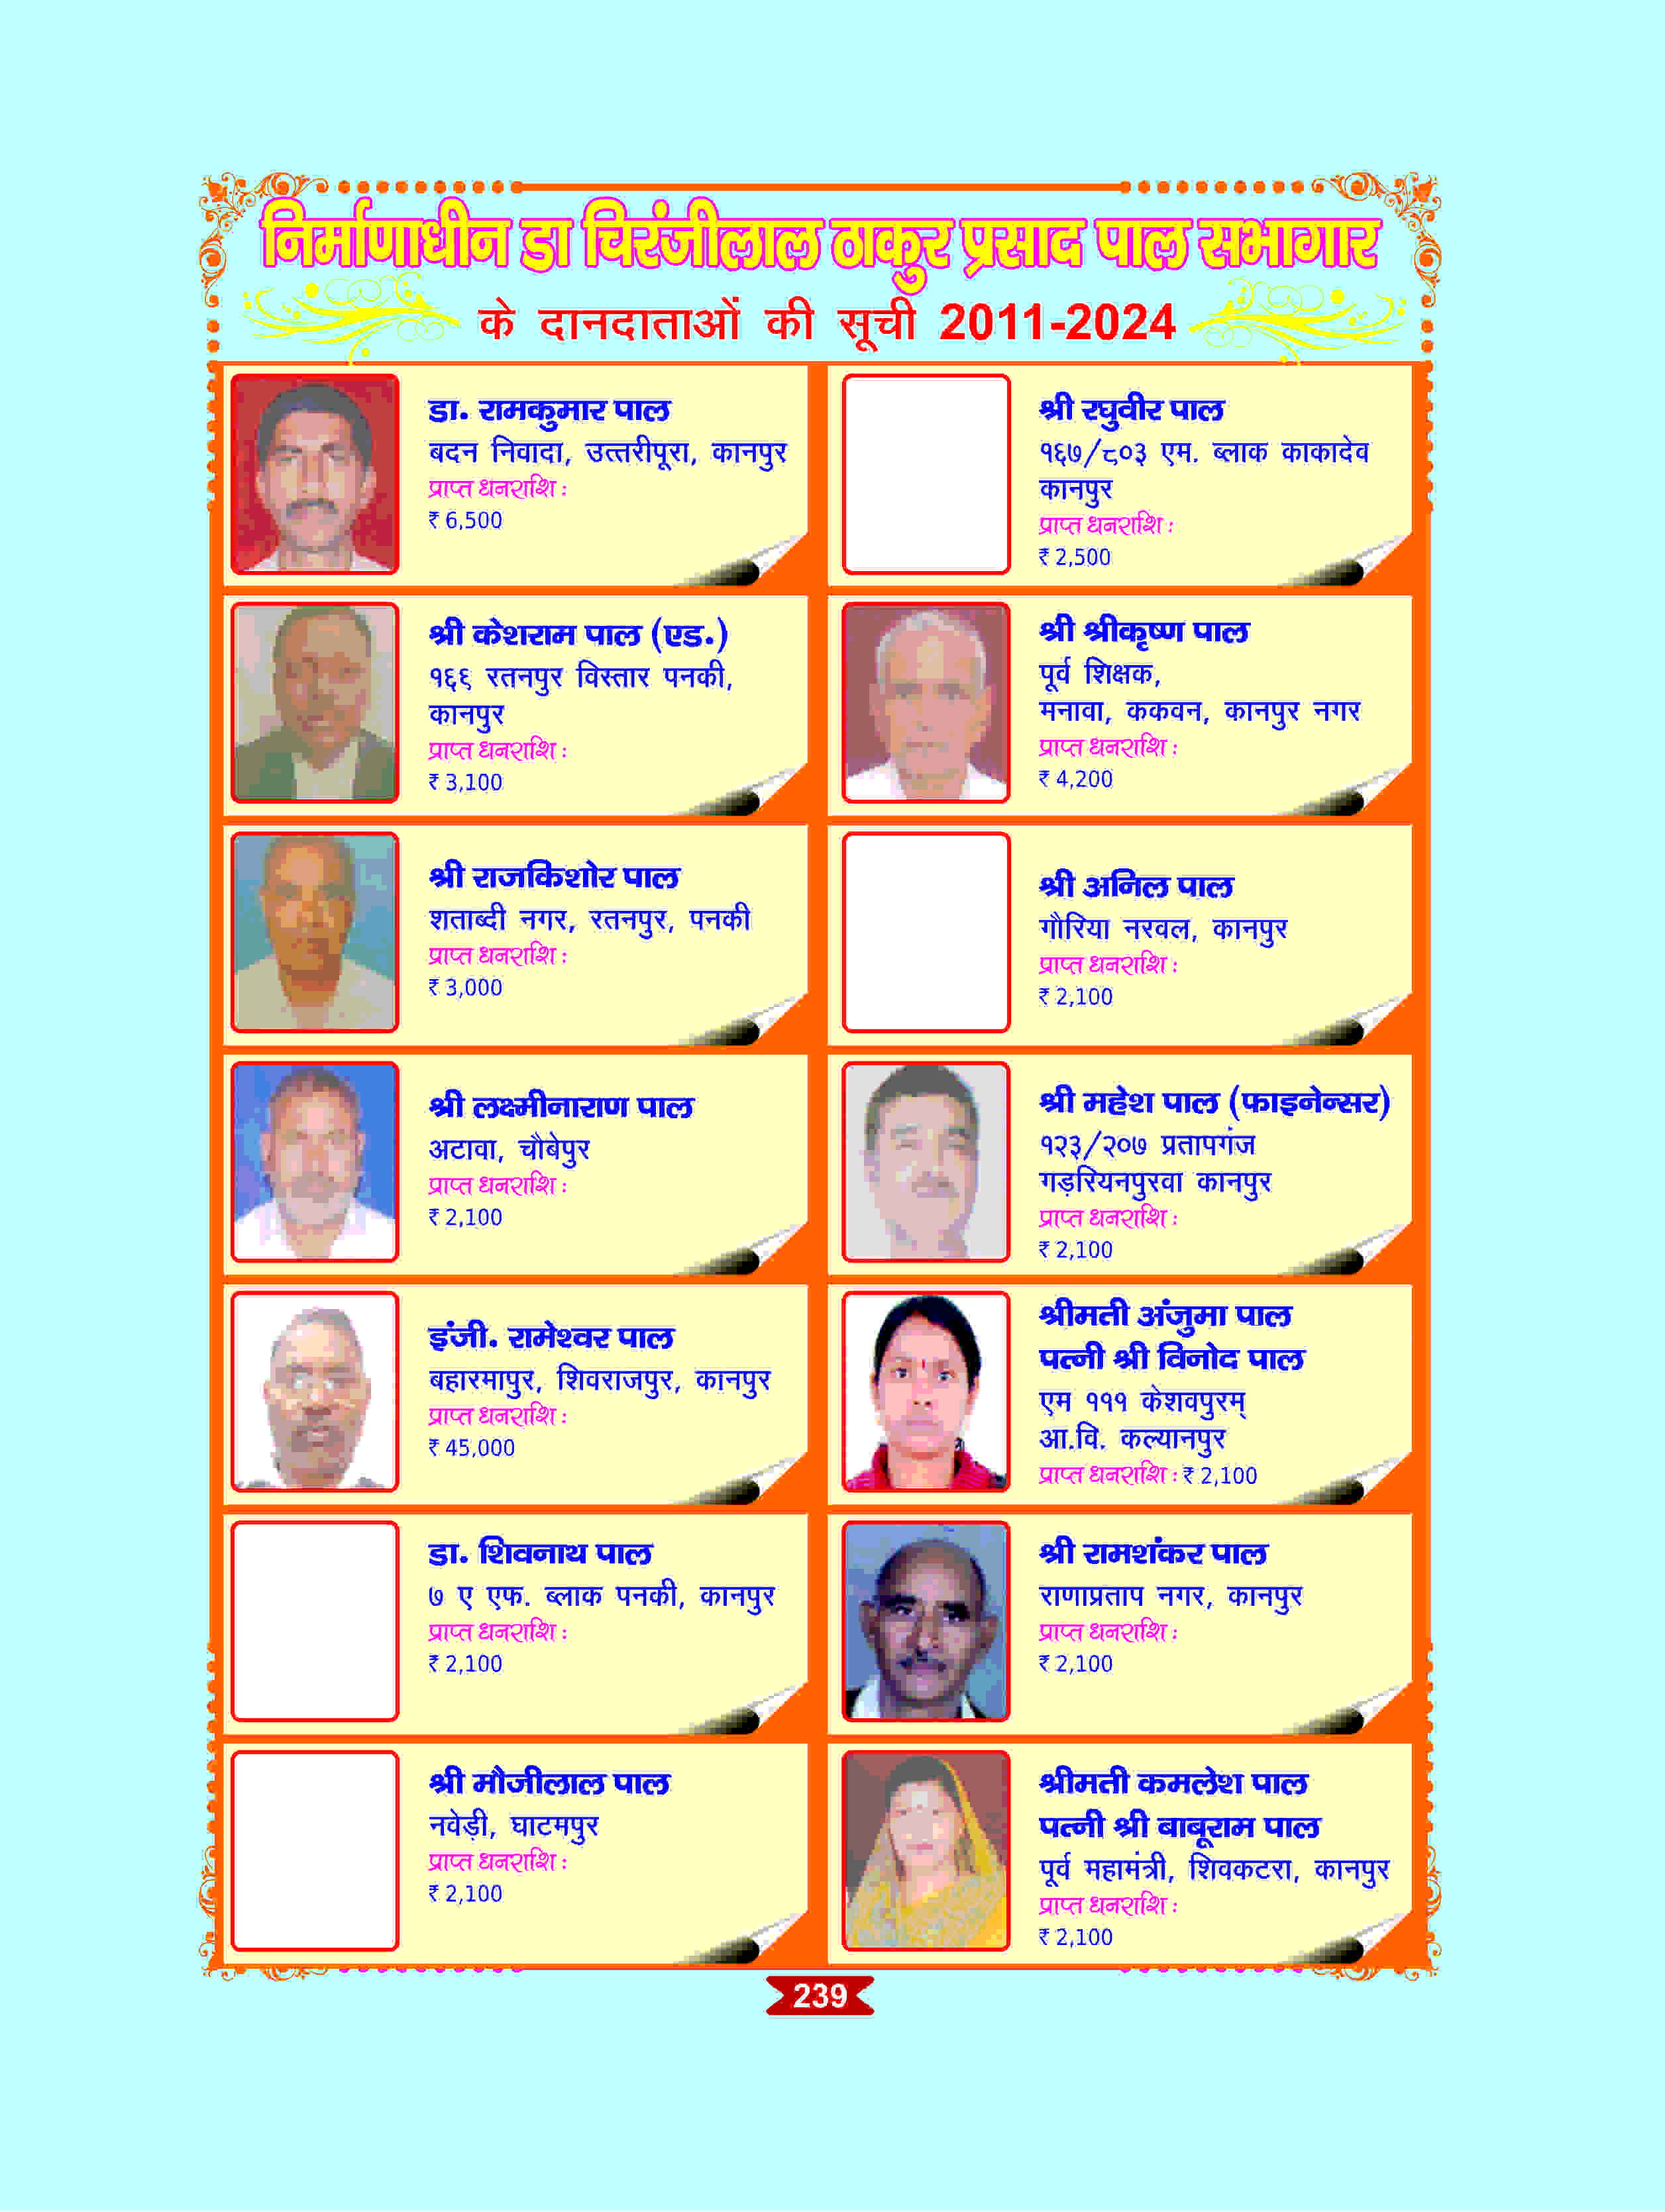 निर्माणाधीन डा चिरंजीलाल ठाकुर प्रसाद पाल सभागार
के दानदाताओं की सूची 2011-2024
डा. रामकुमार पाल
बदन निवादा, उत्तरीपूरा, कानपुर
प्राप्त धनराशि :
₹ 6,500
श्री रघुवीर पाल
१६७/८०३ एम. ब्लाक काकादेव
कानपुर
प्राप्त धनराशि :
₹ 2,500
श्री केशराम पाल (एड.)
१६६ रतनपुर विस्तार पनकी,
कानपुर
प्राप्त धनराशि :
₹ 3,100
श्री श्रीकृष्ण पाल
पूर्व शिक्षक,
मनावा, ककवन, कानपुर नगर
प्राप्त धनराशि :
₹ 4,200
श्री राजकिशोर पाल
शताब्दी नगर, रतनपुर, पनकी
प्राप्त धनराशि :
₹ 3,000
श्री अनिल पाल
गौरिया नरवल, कानपुर
प्राप्त धनराशि :
₹ 2,100
श्री लक्ष्मीनाराण पाल
अटावा, चौबेपुर
प्राप्त धनराशि :
₹ 2,100
श्री महेश पाल (फाइनेन्सर)
१२३/२०७ प्रतापगंज
गड़रियनपुरवा कानपुर
प्राप्त धनराशि :
₹ 2,100
इंजी. रामेश्वर पाल
बहारमापुर, शिवराजपुर, कानपुर
प्राप्त धनराशि :
₹ 45,000
श्रीमती अंजुमा पाल
पत्नी श्री विनोद पाल
एम १११ केशवपुरम्
आ.वि. कल्यानपुर
प्राप्त धनराशि : ₹ 2,100
डा. शिवनाथ पाल
७ ए एफ. ब्लाक पनकी, कानपुर
प्राप्त धनराशि :
₹ 2,100
श्री रामशंकर पाल
राणाप्रताप नगर, कानपुर
प्राप्त धनराशि :
₹ 2,100
श्री मौजीलाल पाल
नवेड़ी, घाटमपुर
प्राप्त धनराशि :
₹ 2,100
श्रीमती कमलेश पाल
पत्नी श्री बाबूराम पाल
पूर्व महामंत्री, शिवकटरा, कानपुर
प्राप्त धनराशि :
₹ 2,100
239